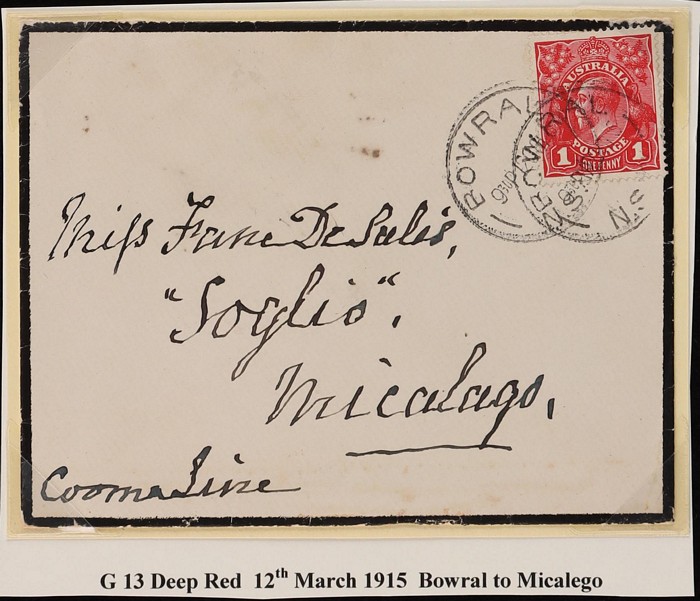 AUSTRALIA
POSTAGE
1 ONE PENNY 1
BOWRAL
BOWRAL
Miss Fane De Salis,
"Soglio".
Micalago,
Cooma Line
G 13 Deep Red 12th March 1915 Bowral to Micalego